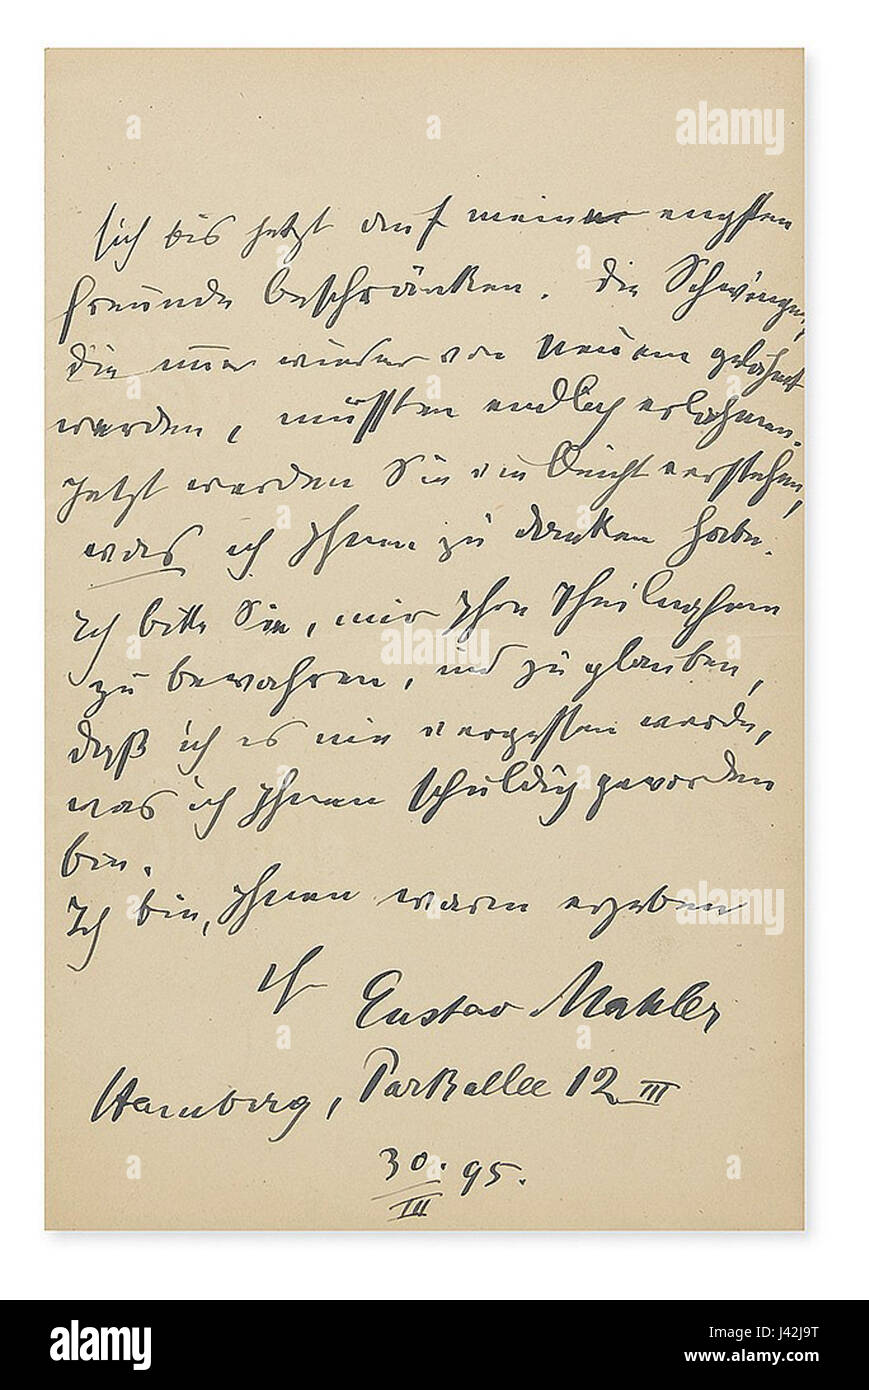 sich bis jetzt auf meine engsten
Freunde beschränken. Die Schwingen,
die immer wieder von Neuem gelähmt
werden, müssten endlich erlahmen.
Jetzt werden Sie vielleicht verstehen,
was ich Ihnen zu danken habe.
Ich bitte Sie, mir Ihre Theilnahme
zu bewahren, und zu glauben,
daß ich es nie vergessen werde,
was ich Ihnen schuldig geworden
bin.
Ich bin, Ihnen warm ergeben
Ihr Gustav Mahler
Hamburg, Parkallee 12 III
30. 95.
III
alamy stock photo
J42J9T
www.alamy.com